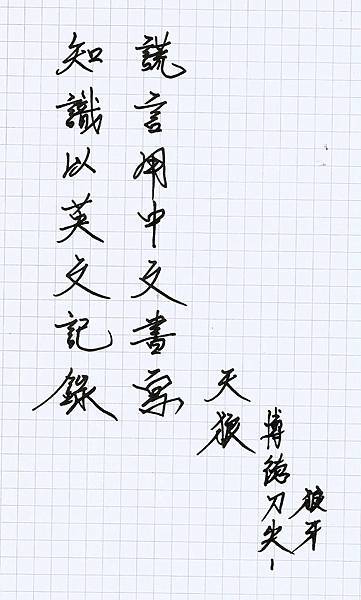 知識以英文記錄
謊言用中文書寫
天狼
博德刀尖-
狼牙